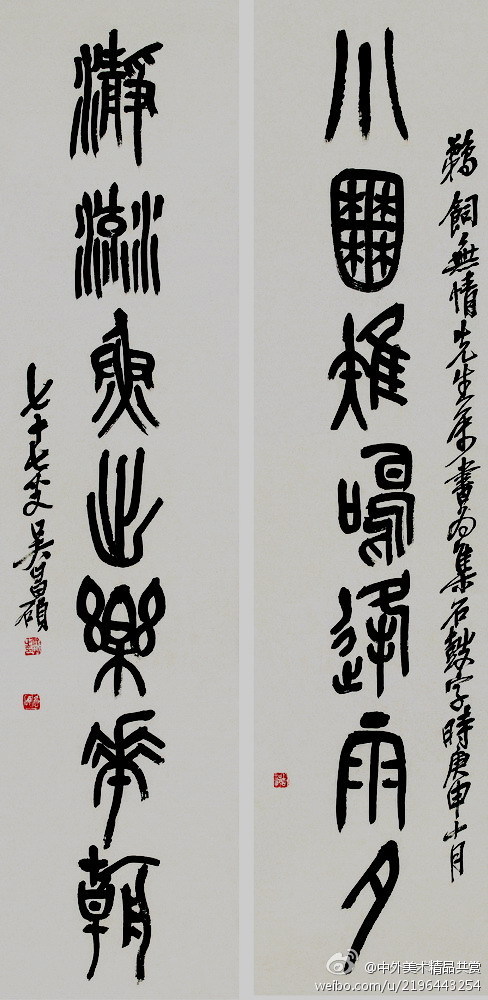 小囿雉鳴逢雨夕
飼無情先生書為集石鼓字時庚申十月
瀞流魚出樂華朝
七十七叟吳昌碩
@中外美术精品共赏
weibo.com/u/2196443254